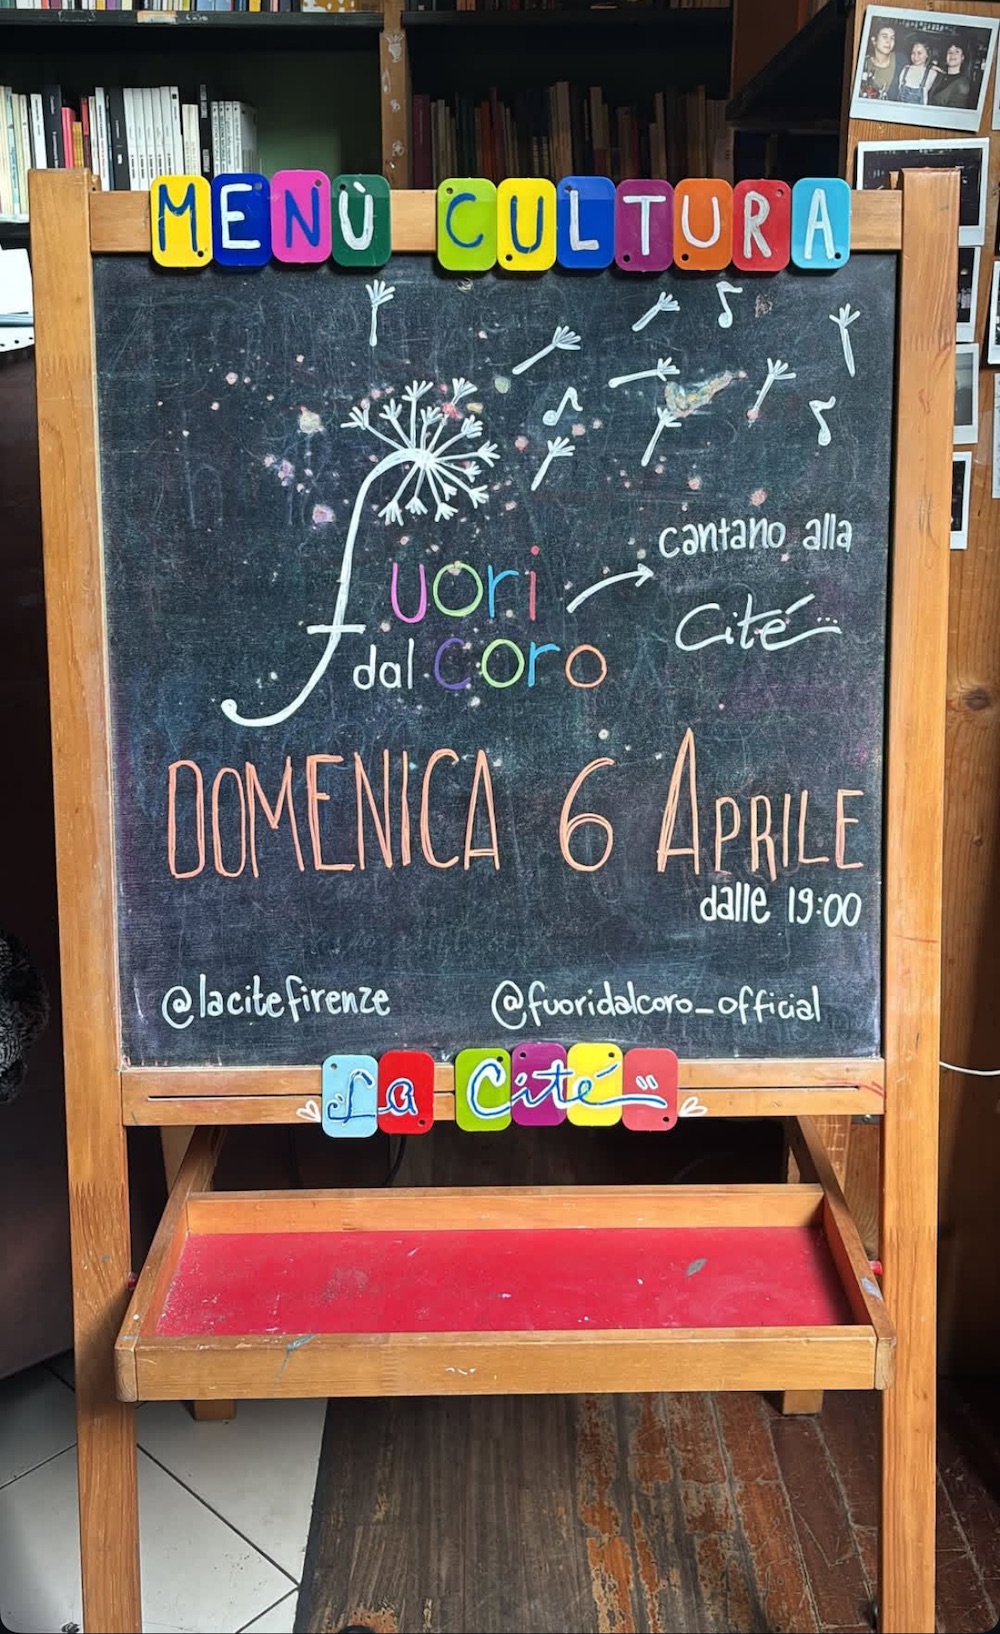 MENÙ CULTURA
fuori
dal coro
cantano alla
Cité
DOMENICA 6 APRILE
dalle 19:00
@lacitefirenze @fuoridalcoro_official
La Cité